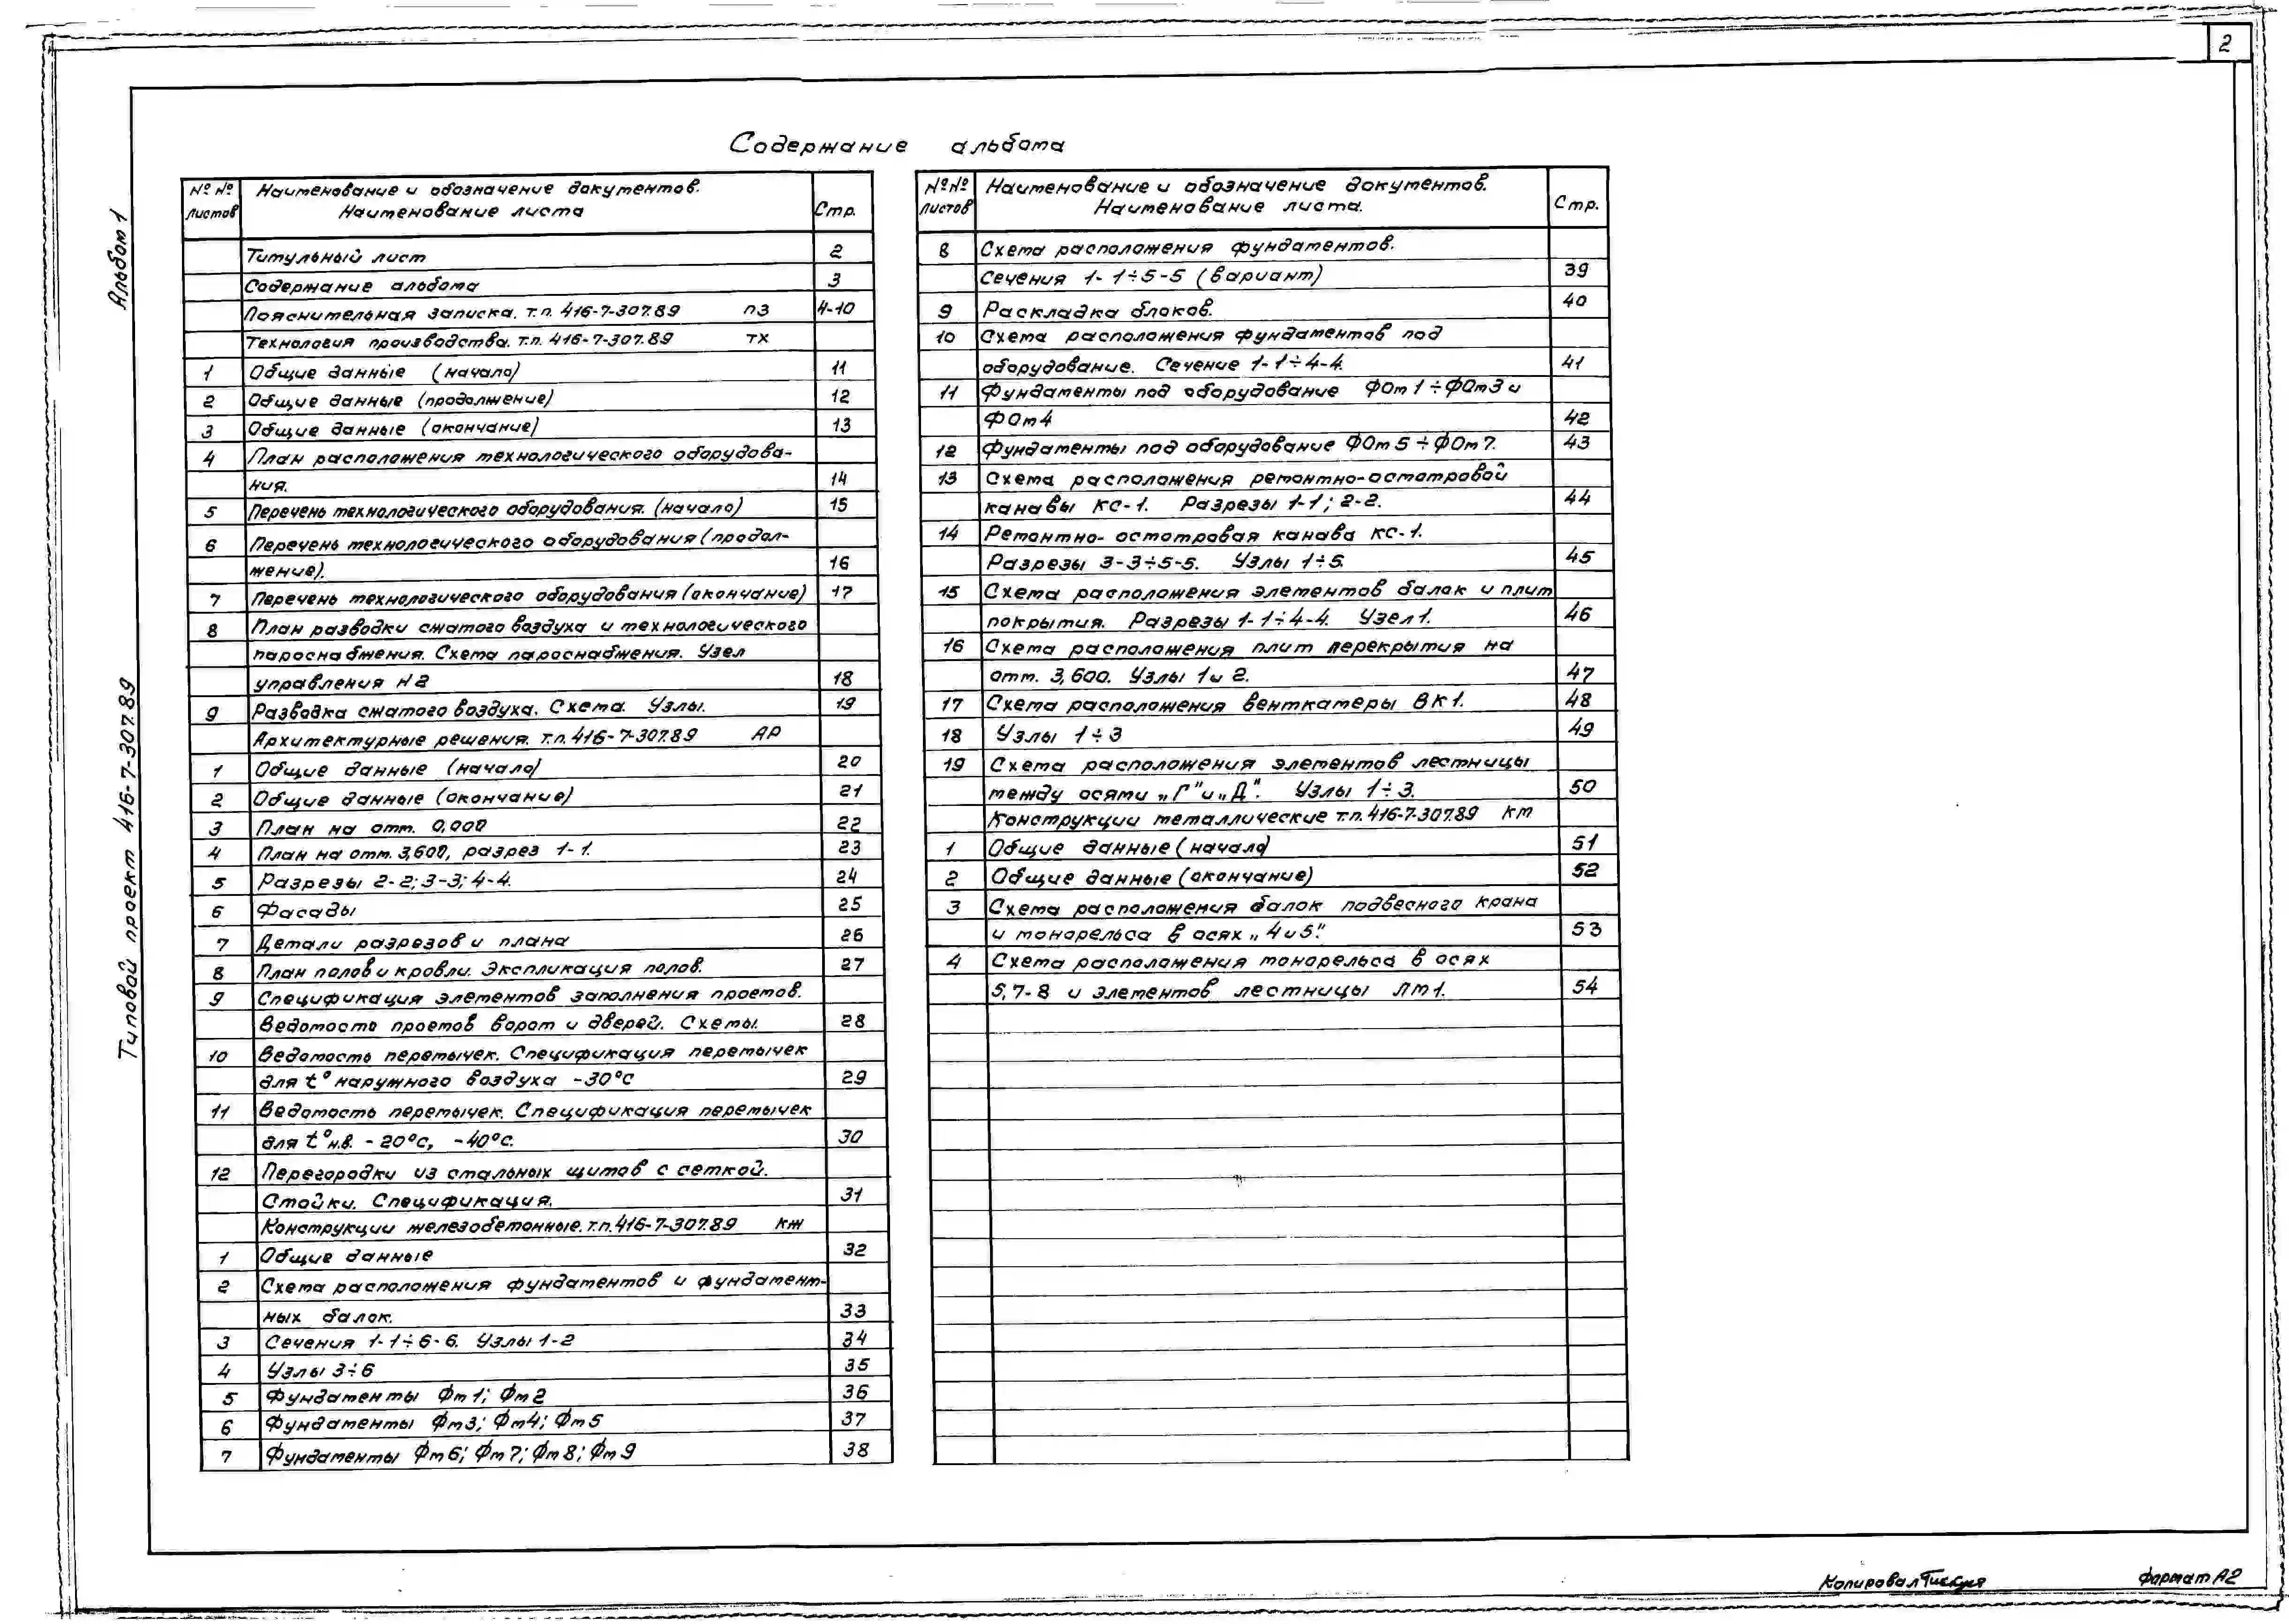 2
Альбом 1
Типовой проект 416-7-307.89
Содержание альбома
№№ листов Наименование и обозначение документов. Наименование листа Стр.
Титульный лист 2
Содержание альбома 3
Пояснительная записка. т.п. 416-7-307.89 ПЗ 4-10
Технология производства. т.п. 416-7-307.89 ТХ
1 Общие данные (начало) 11
2 Общие данные (продолжение) 12
3 Общие данные (окончание) 13
4 План расположения технологического оборудова-
ния. 14
5 Перечень технологического оборудования. (начало) 15
6 Перечень технологического оборудования (продол-
жение). 16
7 Перечень технологического оборудования (окончание) 17
8 План разводки сжатого воздуха и технологического
пароснабжения. Схема пароснабжения. Узел
управления №2 18
9 Разводка сжатого воздуха. Схема. Узлы. 19
Архитектурные решения. т.п. 416-7-307.89 АР
1 Общие данные (начало) 20
2 Общие данные (окончание) 21
3 План на отм. 0,000 22
4 План на отм. 3,600, разрез 1-1. 23
5 Разрезы 2-2; 3-3; 4-4. 24
6 Фасады 25
7 Детали разрезов и плана 26
8 План полов и кровли. Экспликация полов. 27
9 Спецификация элементов заполнения проемов.
Ведомость проемов ворот и дверей. Схемы. 28
10 Ведомость перемычек. Спецификация перемычек
для t° наружного воздуха -30°С 29
11 Ведомость перемычек. Спецификация перемычек
для t° н.в. -20°С, -40°С. 30
12 Перегородки из стальных щитов с сеткой.
Стойки. Спецификация. 31
Конструкции железобетонные. т.п. 416-7-307.89 КЖ
1 Общие данные 32
2 Схема расположения фундаментов и фундамент-
ных балок. 33
3 Сечения 1-1÷6-6. Узлы 1-2 34
4 Узлы 3÷6 35
5 Фундаменты Фм1; Фм2 36
6 Фундаменты Фм3; Фм4; Фм5 37
7 Фундаменты Фм6; Фм7; Фм8; Фм9 38
№№ листов Наименование и обозначение документов. Наименование листа. Стр.
8 Схема расположения фундаментов.
Сечения 1-1÷5-5 (вариант) 39
9 Раскладка блоков. 40
10 Схема расположения фундаментов под
оборудование. Сечение 1-1÷4-4. 41
11 Фундаменты под оборудование ФОм1÷ФОм3 и
ФОм4 42
12 Фундаменты под оборудование ФОм5÷ФОм7. 43
13 Схема расположения ремонтно-осмотровой
канавы КС-1. Разрезы 1-1; 2-2. 44
14 Ремонтно-осмотровая канава КС-1.
Разрезы 3-3÷5-5. Узлы 1÷5. 45
15 Схема расположения элементов балок и плит
покрытия. Разрезы 1-1÷4-4. Узел 1. 46
16 Схема расположения плит перекрытия на
отм. 3,600. Узлы 1 и 2. 47
17 Схема расположения венткамеры ВК1. 48
18 Узлы 1÷3 49
19 Схема расположения элементов лестницы
между осями „Г" и „Д". Узлы 1÷3. 50
Конструкции металлические т.п. 416-7-307.89 КМ
1 Общие данные (начало) 51
2 Общие данные (окончание) 52
3 Схема расположения балок подвесного крана
и монорельса в осях „4 и 5". 53
4 Схема расположения монорельса в осях
5, 7-8 и элементов лестницы ЛМ1. 54
Копировал
Формат А2